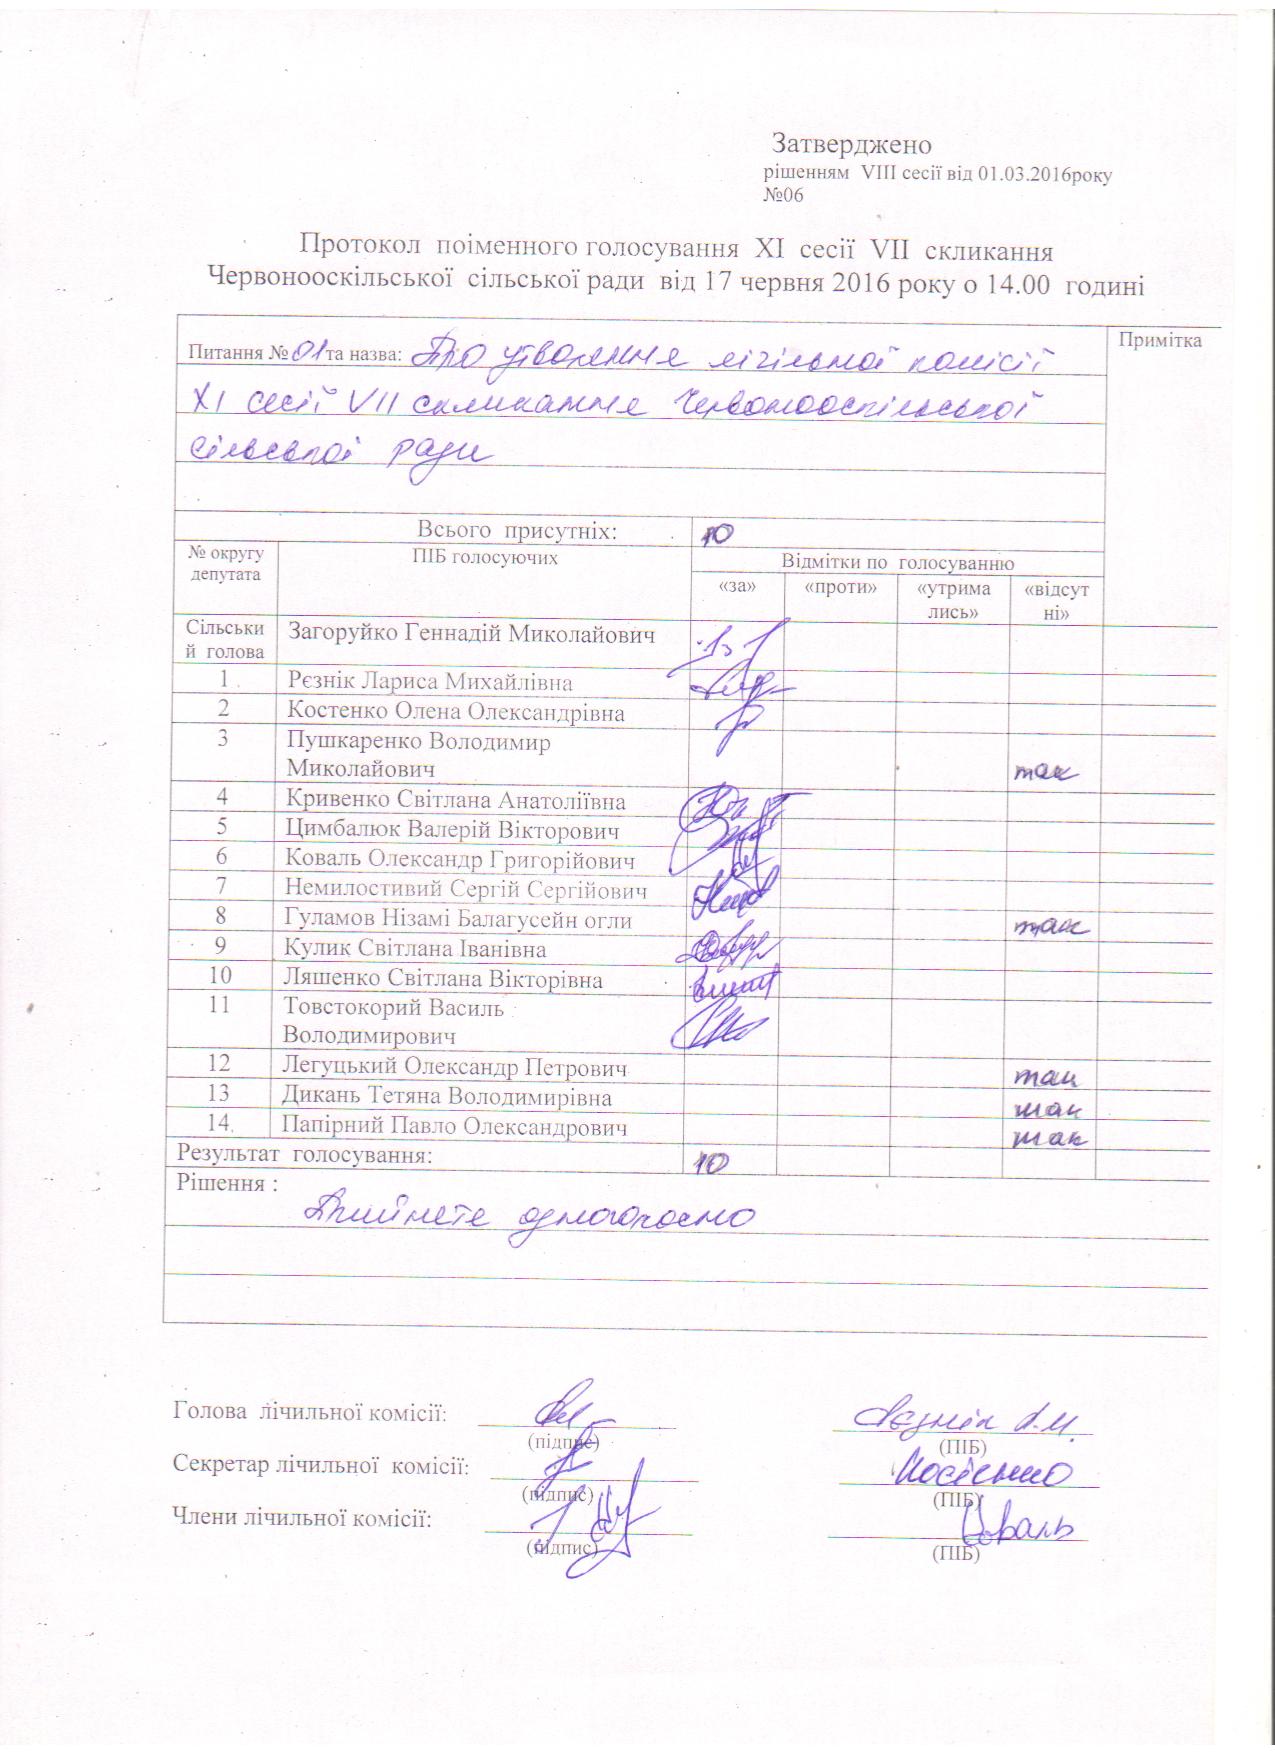 Затверджено
рішенням VIII сесії від 01.03.2016року
№06
Протокол поіменного голосування XI сесії VII скликання
Червонооскільської сільської ради від 17 червня 2016 року о 14.00 годині
Питання №01 та назва: Про утворення лічільної комісії
Примітка
XI сесії VII скликання Червонооскільської
сільської ради
Всього присутніх: 10
№ округу депутата
ПІБ голосуючих
Відмітки по голосуванню
«за» «проти» «утрима лись» «відсут ні»
Сільськи й голова Загоруйко Геннадій Миколайович
1 Рєзнік Лариса Михайлівна
2 Костенко Олена Олександрівна
3 Пушкаренко Володимир
Миколайович так
4 Кривенко Світлана Анатоліївна
5 Цимбалюк Валерій Вікторович
6 Коваль Олександр Григорійович
7 Немилостивий Сергій Сергійович
8 Гуламов Нізамі Балагусейн огли так
9 Кулик Світлана Іванівна
10 Ляшенко Світлана Вікторівна
11 Товстокорий Василь
Володимирович
12 Легуцький Олександр Петрович так
13 Дикань Тетяна Володимирівна так
14 Папірний Павло Олександрович так
Результат голосування: 10
Рішення :
Прийнете одноголосно
Голова лічильної комісії: Рєзнік Л.М.
(підпис) (ПІБ)
Секретар лічильної комісії: Костенко
(підпис) (ПІБ)
Члени лічильної комісії: Коваль
(підпис) (ПІБ)